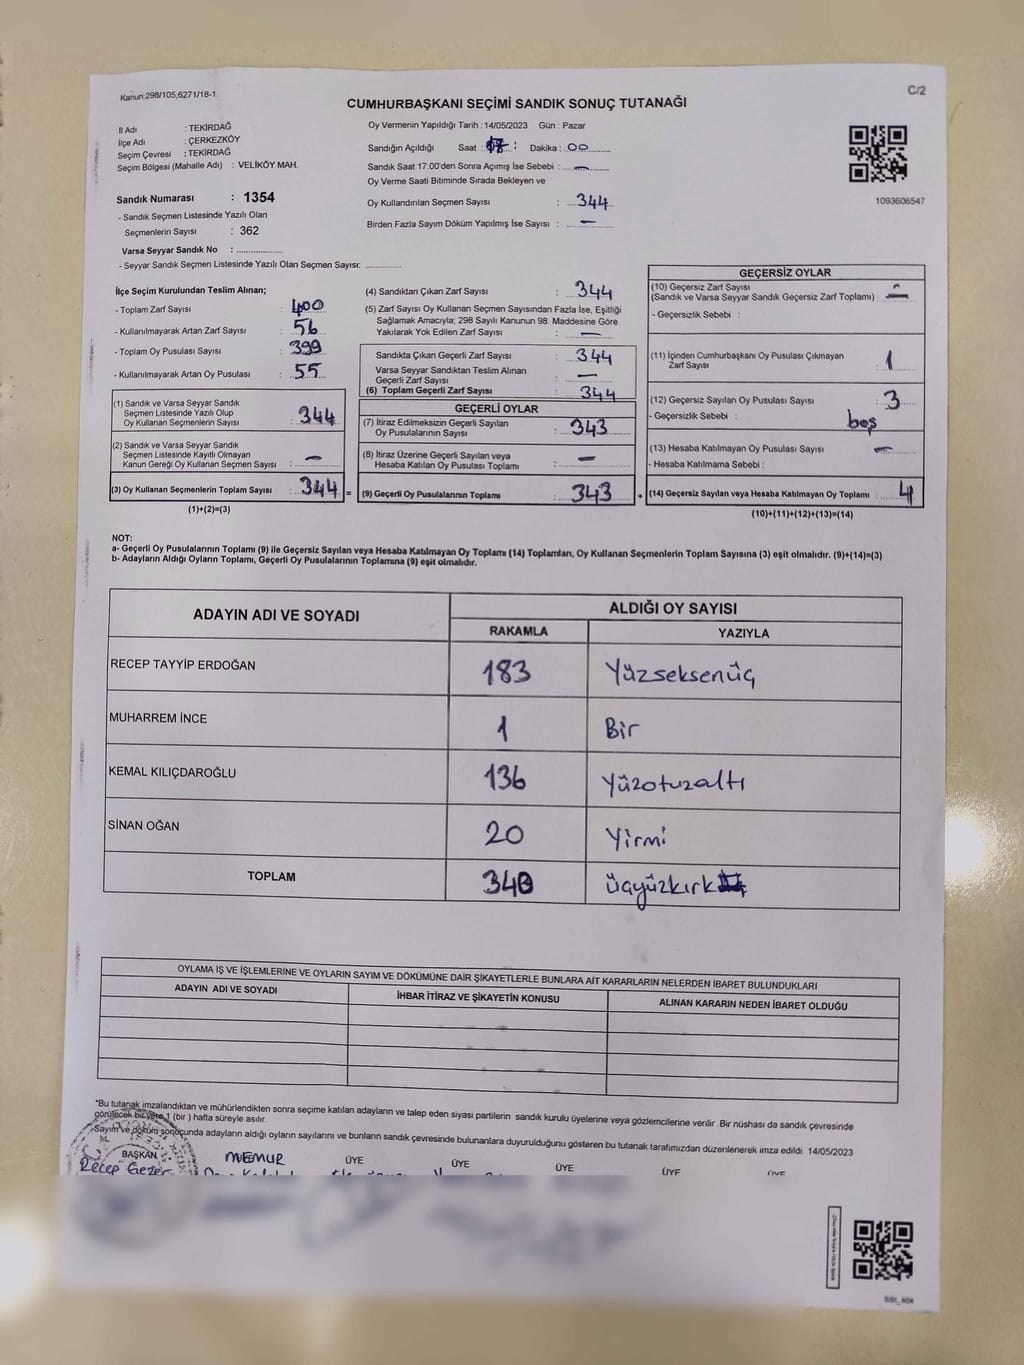 Kanun:298/105,6271/18-1
C/2
CUMHURBAŞKANI SEÇİMİ SANDIK SONUÇ TUTANAĞI
İl Adı : TEKİRDAĞ
İlçe Adı : ÇERKEZKÖY
Seçim Çevresi : TEKİRDAĞ
Seçim Bölgesi (Mahalle Adı) : VELİKÖY MAH.
Sandık Numarası : 1354
- Sandık Seçmen Listesinde Yazılı Olan
Seçmenlerin Sayısı : 362
Varsa Seyyar Sandık No : ................
- Seyyar Sandık Seçmen Listesinde Yazılı Olan Seçmen Sayısı: ............
Oy Vermenin Yapıldığı Tarih : 14/05/2023 Gün : Pazar
Sandığın Açıldığı Saat : Dakika : 00
Sandık Saat 17:00'den Sonra Açımış İse Sebebi : —
Oy Verme Saati Bitiminde Sırada Bekleyen ve
Oy Kullandırılan Seçmen Sayısı : 344
Birden Fazla Sayım Döküm Yapılmış İse Sayısı : —
1093606547
İlçe Seçim Kurulundan Teslim Alınan;
- Toplam Zarf Sayısı : 400
- Kullanılmayarak Artan Zarf Sayısı : 56
- Toplam Oy Pusulası Sayısı : 399
- Kullanılmayarak Artan Oy Pusulası : 55
(1) Sandık ve Varsa Seyyar Sandık
Seçmen Listesinde Yazılı Olup
Oy Kullanan Seçmenlerin Sayısı : 344
(2) Sandık ve Varsa Seyyar Sandık
Seçmen Listesinde Kayıtlı Olmayan
Kanun Gereği Oy Kullanan Seçmen Sayısı : —
(3) Oy Kullanan Seçmenlerin Toplam Sayısı : 344 =
(1)+(2)=(3)
(4) Sandıktan Çıkan Zarf Sayısı : 344
(5) Zarf Sayısı Oy Kullanan Seçmen Sayısından Fazla İse, Eşitliği
Sağlamak Amacıyla; 298 Sayılı Kanunun 98. Maddesine Göre
Yakılarak Yok Edilen Zarf Sayısı : —
Sandıkta Çıkan Geçerli Zarf Sayısı : 344
Varsa Seyyar Sandıktan Teslim Alınan
Geçerli Zarf Sayısı : —
(6) Toplam Geçerli Zarf Sayısı : 344
GEÇERLİ OYLAR
(7) İtiraz Edilmeksizin Geçerli Sayılan
Oy Pusulalarının Sayısı : 343
(8) İtiraz Üzerine Geçerli Sayılan veya
Hesaba Katılan Oy Pusulası Toplamı : —
(9) Geçerli Oy Pusulalarının Toplamı : 343 +
GEÇERSİZ OYLAR
(10) Geçersiz Zarf Sayısı
(Sandık ve Varsa Seyyar Sandık Geçersiz Zarf Toplamı) : —
- Geçersizlik Sebebi :
(11) İçinden Cumhurbaşkanı Oy Pusulası Çıkmayan
Zarf Sayısı : 1
(12) Geçersiz Sayılan Oy Pusulası Sayısı : 3
- Geçersizlik Sebebi : boş
(13) Hesaba Katılmayan Oy Pusulası Sayısı : —
- Hesaba Katılmama Sebebi :
(14) Geçersiz Sayılan veya Hesaba Katılmayan Oy Toplamı : 4
(10)+(11)+(12)+(13)=(14)
NOT:
a- Geçerli Oy Pusulalarının Toplamı (9) ile Geçersiz Sayılan veya Hesaba Katılmayan Oy Toplamı (14) Toplamları, Oy Kullanan Seçmenlerin Toplam Sayısına (3) eşit olmalıdır. (9)+(14)=(3)
b- Adayların Aldığı Oyların Toplamı, Geçerli Oy Pusulalarının Toplamına (9) eşit olmalıdır.
ADAYIN ADI VE SOYADI
ALDIĞI OY SAYISI
RAKAMLA YAZIYLA
RECEP TAYYİP ERDOĞAN 183 Yüzseksenüç
MUHARREM İNCE 1 Bir
KEMAL KILIÇDAROĞLU 136 Yüzotuzaltı
SİNAN OĞAN 20 Yirmi
TOPLAM 340 üçyüzkırk
OYLAMA İŞ VE İŞLEMLERİNE VE OYLARIN SAYIM VE DÖKÜMÜNE DAİR ŞİKAYETLERLE BUNLARA AİT KARARLARIN NELERDEN İBARET BULUNDUKLARI
ADAYIN ADI VE SOYADI İHBAR İTİRAZ VE ŞİKAYETİN KONUSU ALINAN KARARIN NEDEN İBARET OLDUĞU
"Bu tutanak imzalandıktan ve mühürlendikten sonra seçime katılan adayların ve talep eden siyasi partilerin sandık kurulu üyelerine veya gözlemcilerine verilir .Bir nüshası da sandık çevresinde
görülecek bir yere 1 (bir ) hafta süreyle asılır.
Sayım ve döküm sonucunda adayların aldığı oyların sayılarını ve bunların sandık çevresinde bulunanlara duyurulduğunu gösteren bu tutanak tarafımızdan düzenlenerek imza edildi. 14/05/2023
BAŞKAN MEMUR ÜYE ÜYE ÜYE ÜYE ÜYE
Recep Gezer